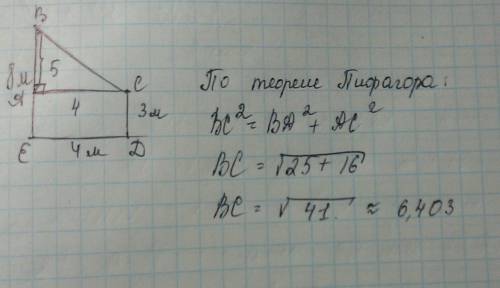 B
8 м
5
A
C
4
3 м
E
4 м
D
По теореме Пифагора:
BC² = BA² + AC²
BC = √25 + 16
BC = √41 ≈ 6,403